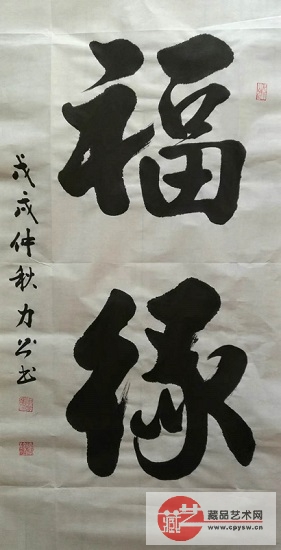 福
缘
戊戌仲秋力公书
藏艺
藏品艺术网
www.cpysw.cn